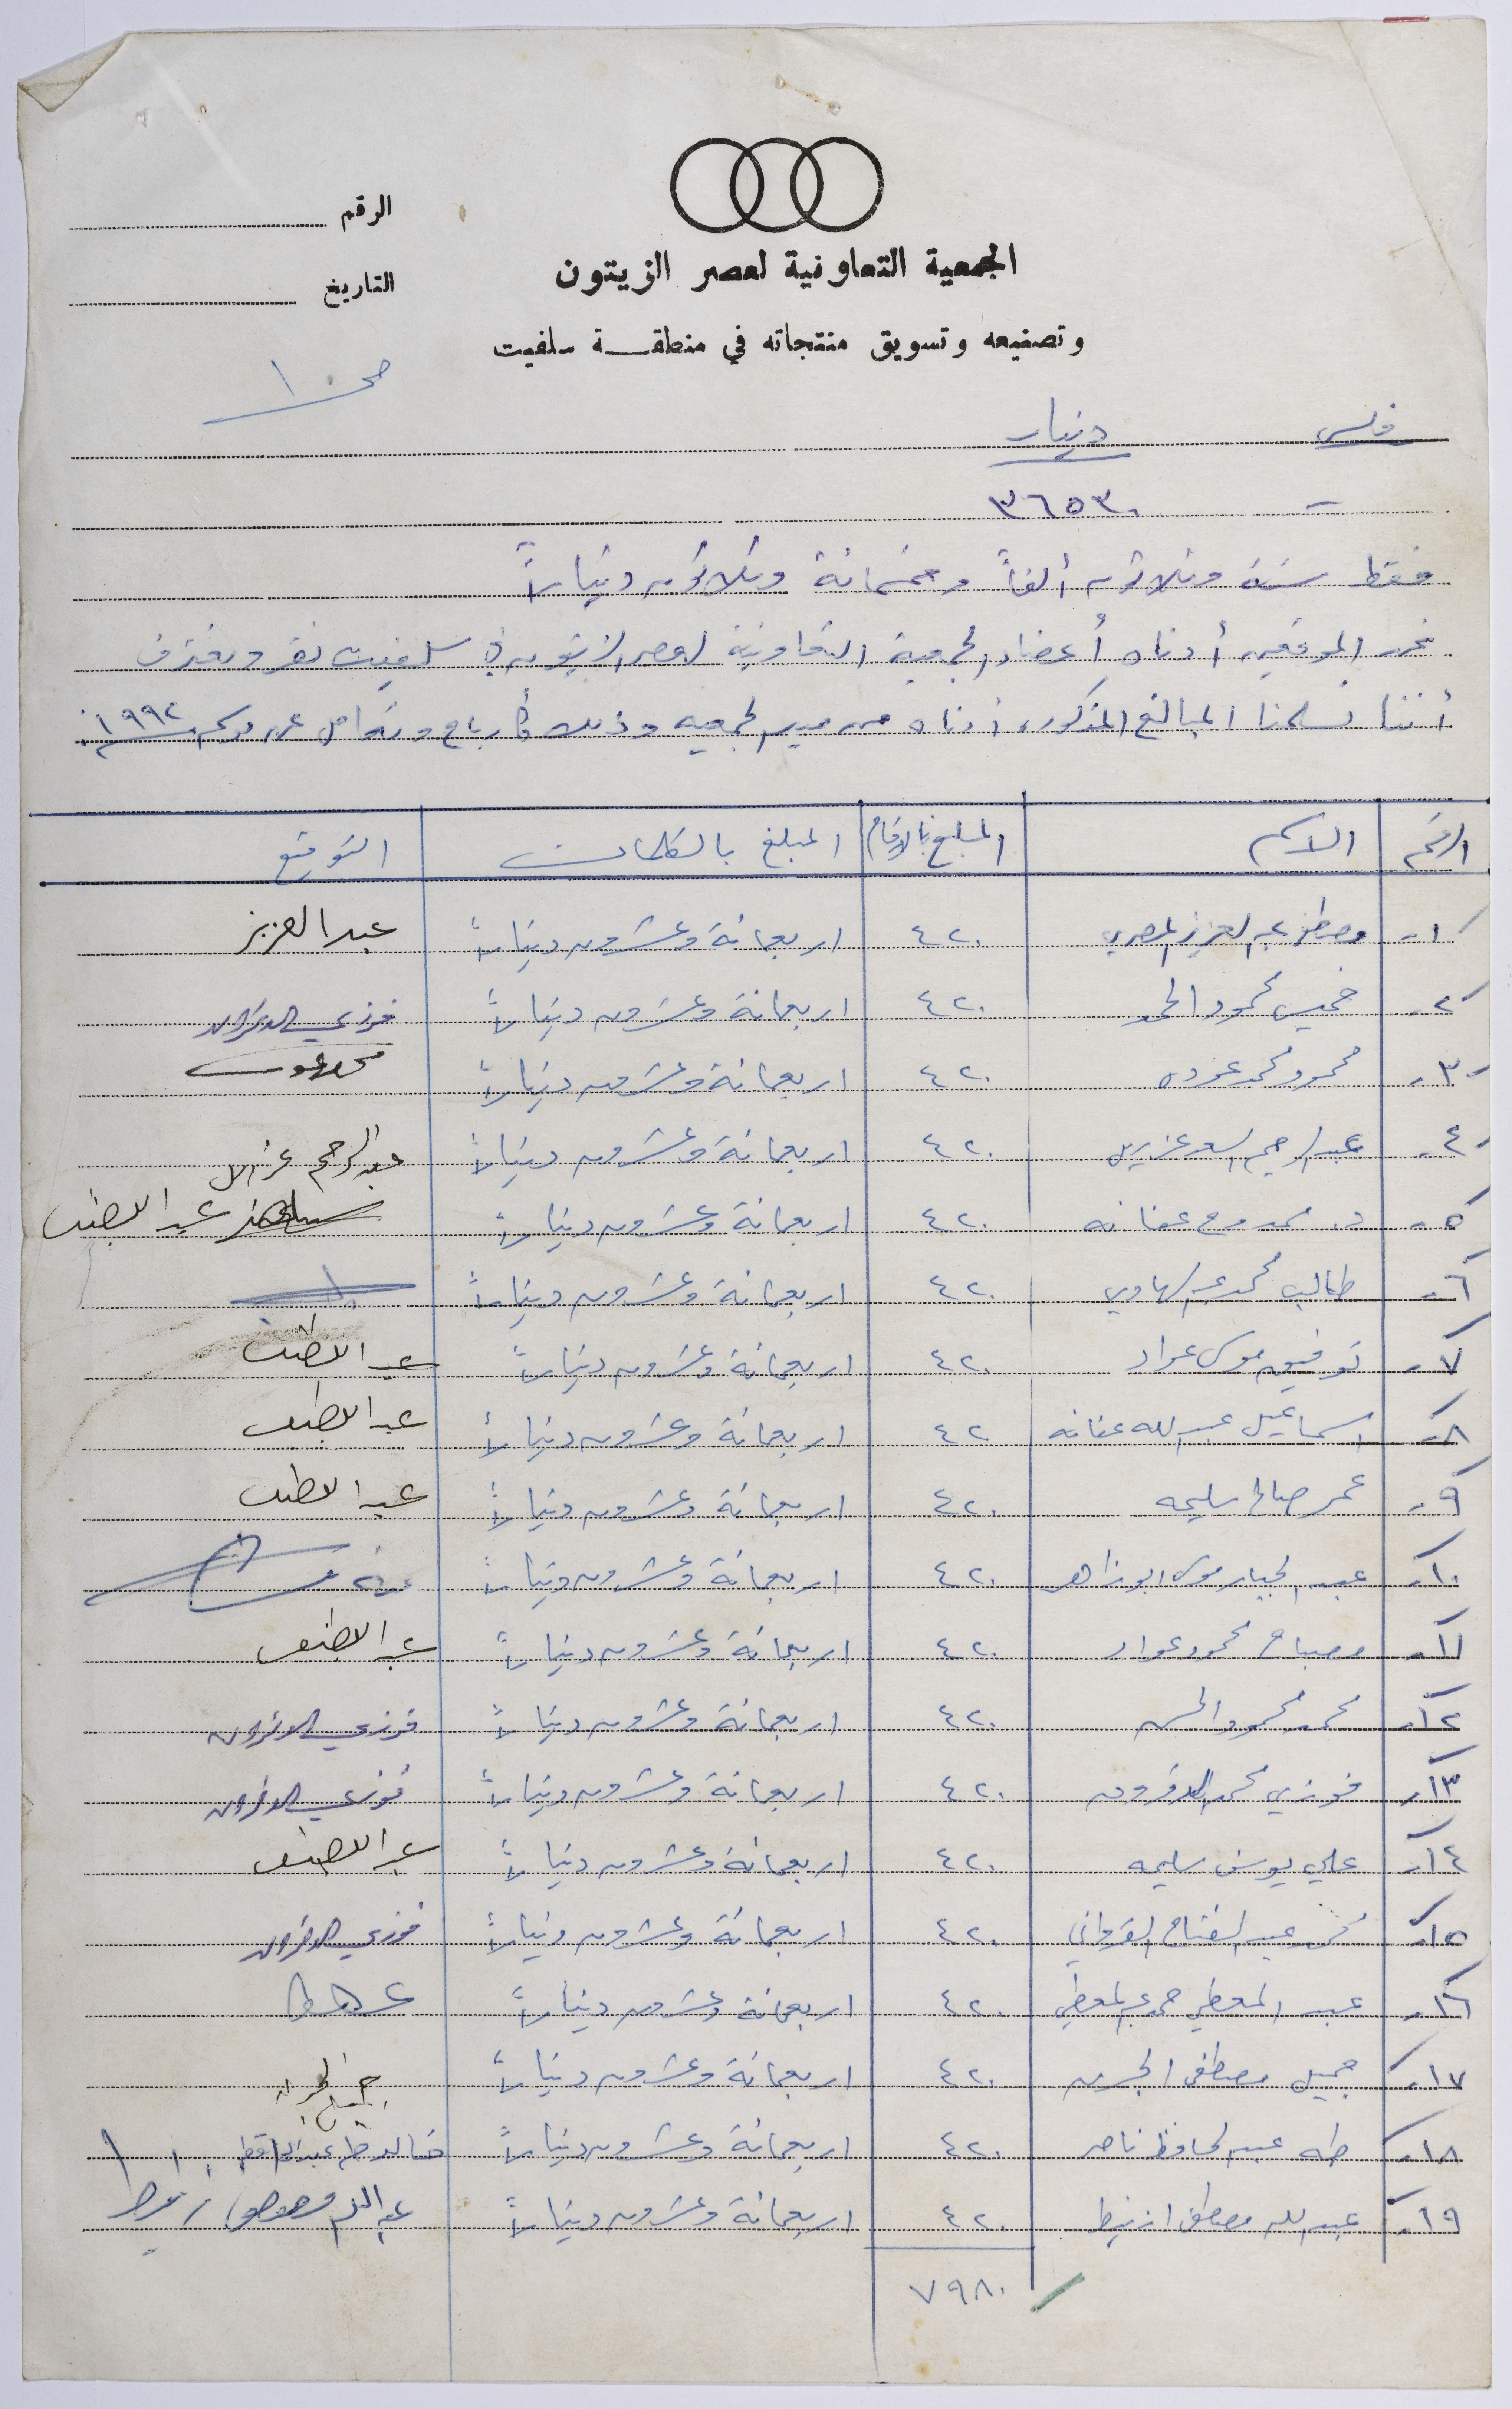 الرقم
التاريخ
الجمعية التعاونية لعصر الزيتون
وتصنيعه وتسويق منتجاته في منطقة سلفيت
ص ١
فلس دينار
- ٣٦٥٣٠
فقط ستة وثلاثون ألفاً وخمسمائة وثلاثون ديناراً
نحن الموقعين أدناه أعضاء الجمعية التعاونية لعصر الزيتون في سلفيت نقر ونعترف
أننا تسلمنا المبالغ المذكورة أدناه من مدير الجمعية وذلك كأرباح عن موسم ١٩٩٢
الرقم الاسم المبلغ بالارقام المبلغ بالكلمات التوقيع
١- مصطفى عبد العزيز المصري ٤٢٠ اربعمائة وعشرون ديناراً عبد العزيز
٢- خميس محمود الحمد ٤٢٠ اربعمائة وعشرون ديناراً فوزي
٣- محمود محمد عودة ٤٢٠ اربعمائة وعشرون ديناراً
٤- عبد الرحيم اسعد ٤٢٠ اربعمائة وعشرون ديناراً عبد الرحيم
٥- د. ممدوح عفانه ٤٢٠ اربعمائة وعشرون ديناراً عبد اللطيف
٦- طالب محمد عبد الهادي ٤٢٠ اربعمائة وعشرون ديناراً
٧- توفيق موسى عواد ٤٢٠ اربعمائة وعشرون ديناراً عبد اللطيف
٨- اسماعيل عبد الله عفانه ٤٢٠ اربعمائة وعشرون ديناراً عبد اللطيف
٩- عمر صالح سليمه ٤٢٠ اربعمائة وعشرون ديناراً عبد اللطيف
١٠- عبد الجبار موسى ابو زاهر ٤٢٠ اربعمائة وعشرون ديناراً
١١- مصباح محمود عواد ٤٢٠ اربعمائة وعشرون ديناراً عبد اللطيف
١٢- محمد محمود الحسن ٤٢٠ اربعمائة وعشرون ديناراً فوزي
١٣- فوزي محمد ٤٢٠ اربعمائة وعشرون ديناراً فوزي
١٤- علي يوسف سليمه ٤٢٠ اربعمائة وعشرون ديناراً عبد اللطيف
١٥- عبد الفتاح ٤٢٠ اربعمائة وعشرون ديناراً فوزي
١٦- عبد المعطي حمد عبد المعطي ٤٢٠ اربعمائة وعشرون ديناراً
١٧- جميل مصطفى ٤٢٠ اربعمائة وعشرون ديناراً جميل
١٨- طه عبد الحافظ ناصر ٤٢٠ اربعمائة وعشرون ديناراً خالد طه عبد الحافظ
١٩- عبد الله مصطفى ازنيط ٤٢٠ اربعمائة وعشرون ديناراً عبد الله مصطفى ازنيط
٧٩٨٠